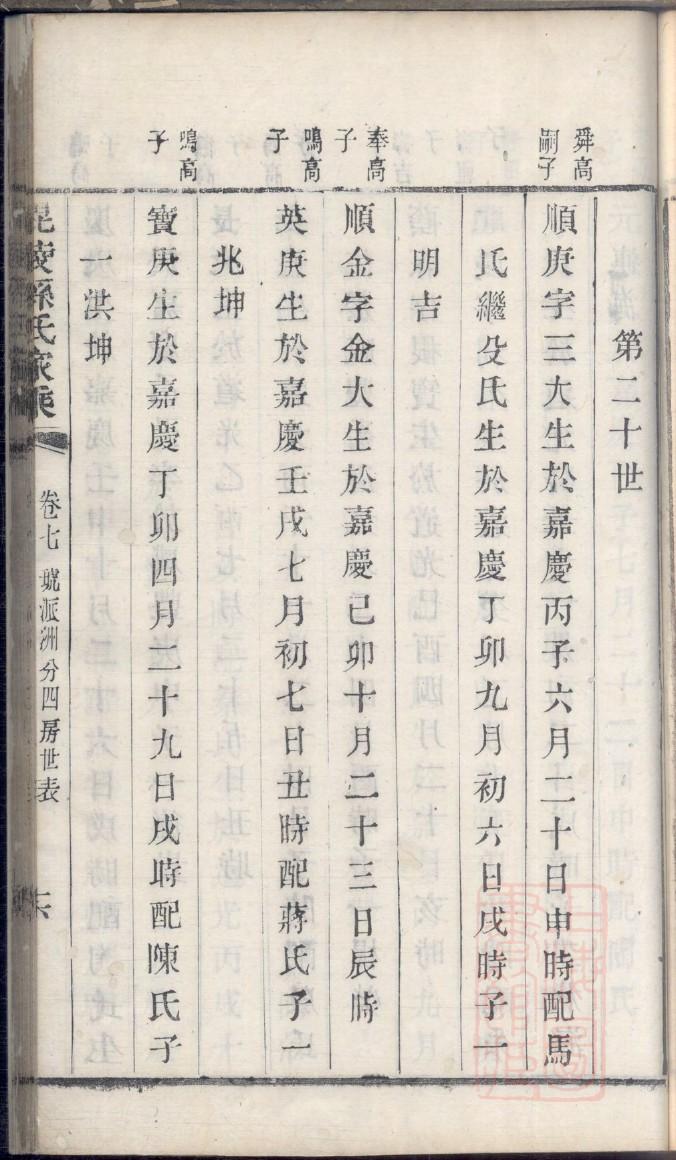 第二十世
舜高嗣子
順庚字三大生於嘉慶丙子六月二十日申時配馬
氏繼殳氏生於嘉慶丁卯九月初六日戌時子一
明吉
奉高子
順金字金大生於嘉慶己卯十月二十三日辰時
鳴高子
英庚生於嘉慶壬戌七月初七日丑時配蔣氏子一
兆坤
鳴高子
寶庚生於嘉慶丁卯四月二十九日戌時配陳氏子
一洪坤
毘陵孫氏家乘
卷七 號派洲分四房世表
六